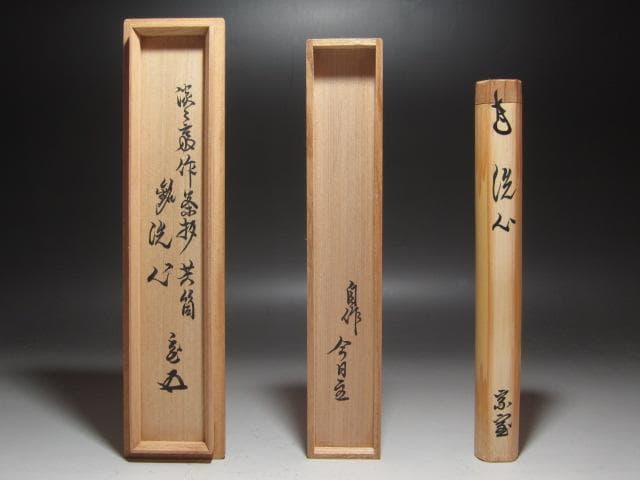 淡々斎作茶杓 共筒
銘 洗心
自作 今日主
洗心
宗室